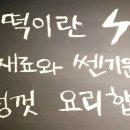 떡이란
재료와 쎈기운
성껏 요리합